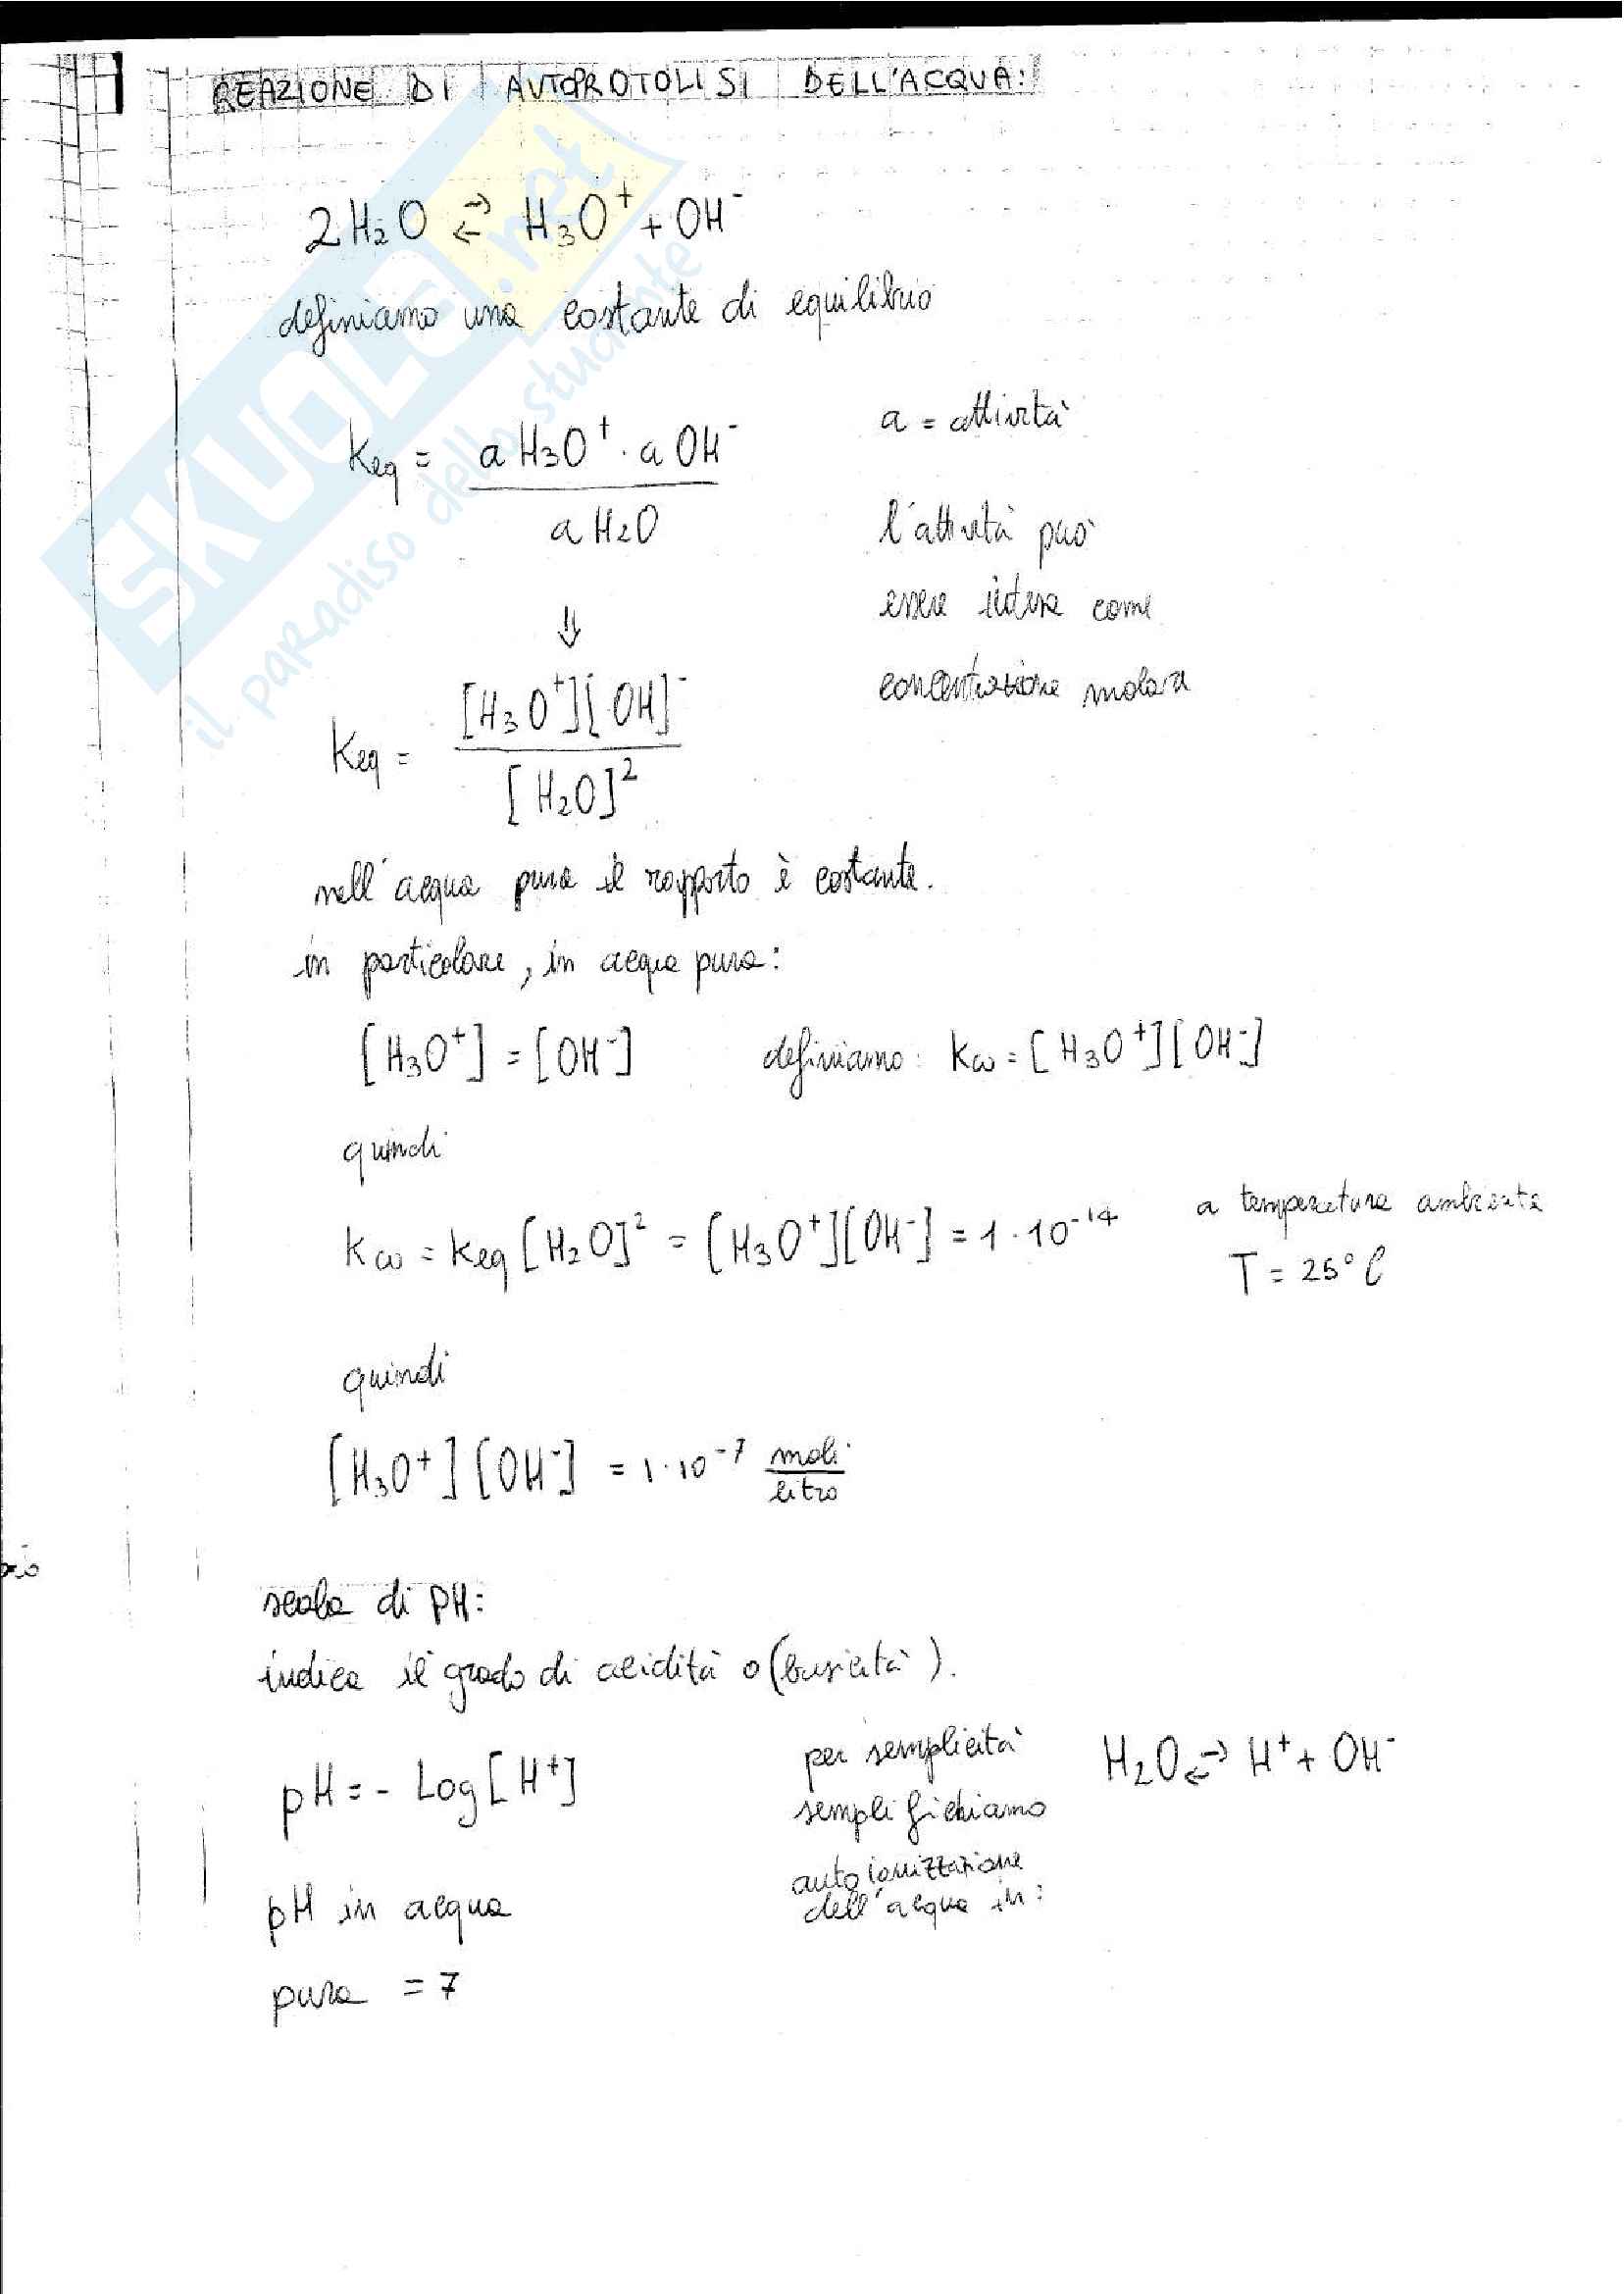 REAZIONE DI AUTOPROTOLISI DELL'ACQUA:
2H₂O ⇄ H₃O⁺ + OH⁻
definiamo una costante di equilibrio
Keq = aH₃O⁺ · aOH⁻ / aH₂O
a = attività
l'attività può
essere intesa come
concentrazione molare
⇓
Keq = [H₃O⁺][OH]⁻ / [H₂O]²
nell'acqua pura il rapporto è costante.
in particolare, in acqua pura:
[H₃O⁺] = [OH⁻] definiamo: Kw = [H₃O⁺][OH⁻]
quindi
Kw = Keq [H₂O]² = [H₃O⁺][OH⁻] = 1·10⁻¹⁴ a temperatura ambiente
T = 25°C
quindi
[H₃O⁺][OH⁻] = 1·10⁻⁷ moli/litro
scala di PH:
indica il grado di acidità o (basicità).
pH = - Log[H⁺]
per semplicità
semplifichiamo
autoionizzazione
dell'acqua in:
H₂O ⇄ H⁺ + OH⁻
pH in acqua
pura = 7
SKUOLA.net
il paradiso dello studente